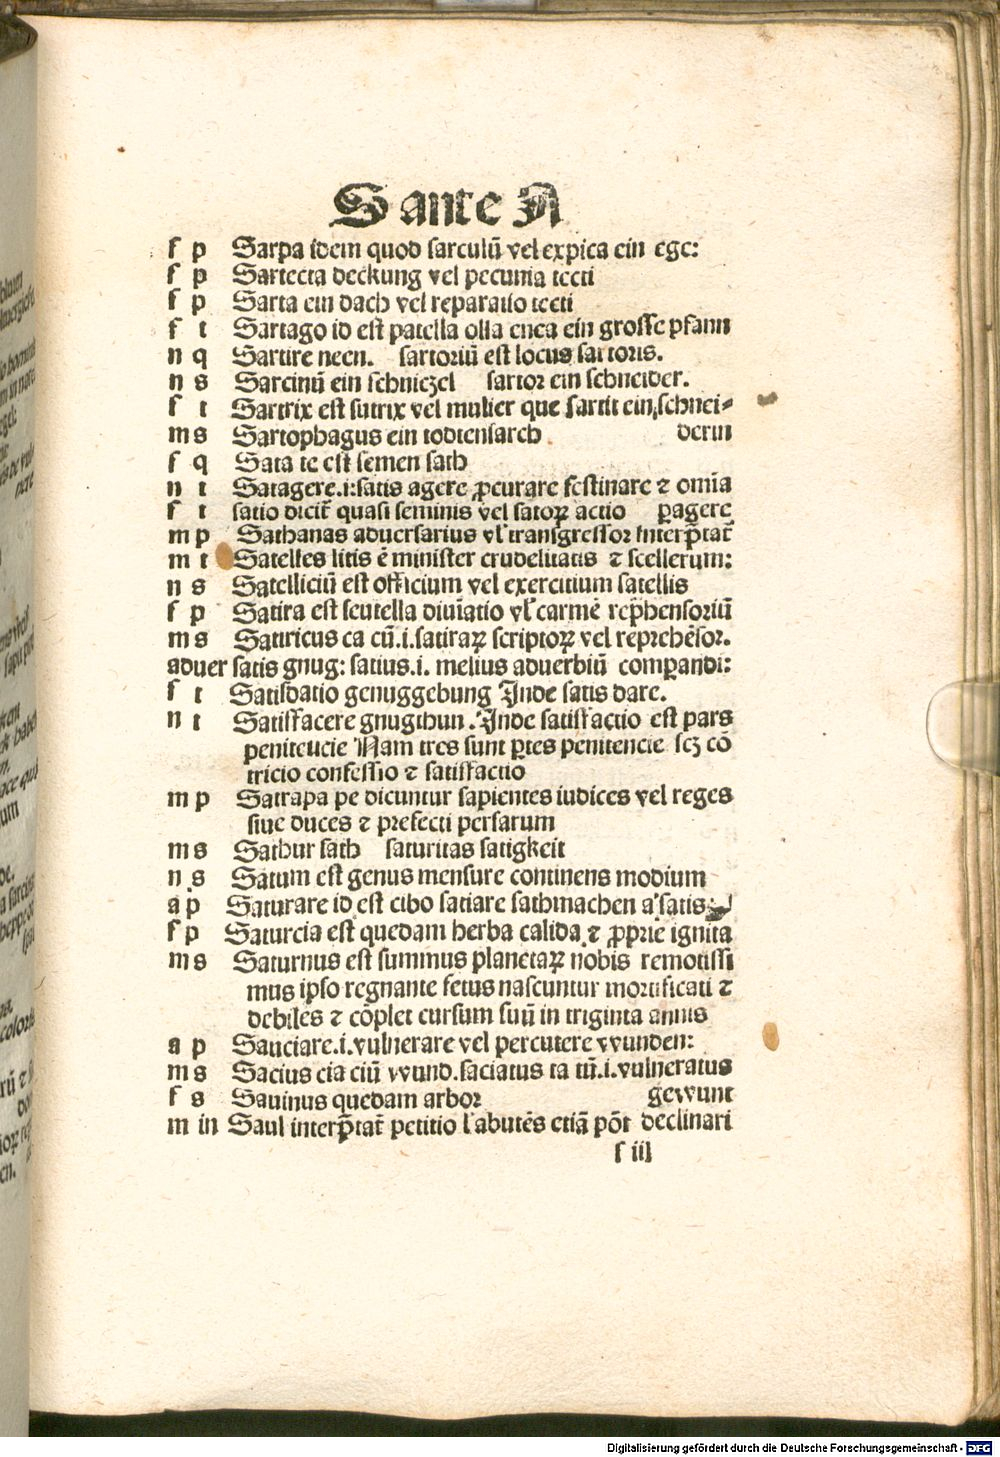 S ante A
f p Sarpa idem quod sarculū vel expica ein ege:
f p Sartecta deckung vel pecunia tecti
f p Sarta ein dach vel reparatio tecti
f t Sartago id est patella olla enea ein grosse pfann
n q Sartire neen. sartoriū est locus sartoris.
n s Sarcinū ein schniczel sartor ein schneider.
f t Sartrix est sutrix vel mulier que sartit ein schnei⸗
m s Sartophagus ein todtensarch derin
f q Sata te est semen sath
n t Satagere.i:satis agere ꝓcurare festinare ⁊ omīa
f t satio dicit̃ quasi seminis vel satoꝝ actio ꝑagere
m p Sathanas aduersarius vl̕ transgressor interp̄tat̃
m t Satelles litis ē minister crudelitatis ⁊ scellerum:
n s Satelliciū est officium vel exercitium satellis
f p Satira est scutella diuīatio vl̕ carmē rep̄hensoriū
m s Satiricus ca cū.i.satiraꝝ scriptoꝝ vel reprehēsor.
aduer satis gnug: satius.i. melius aduerbiū comꝑandi:
f t Satisdatio genuggebung Inde satis dare.
n t Satisfacere gnugthun. Inde satisfactio est pars
peniteucie Nam tres sunt ꝑtes penitencie scꝫ cō
tricio confessio ⁊ satisfactio
m p Satrapa pe dicuntur sapientes iudices vel reges
siue duces ⁊ prefecti persarum
m s Sathur sath saturitas satigkeit
n s Satum est genus mensure continens modium
a p Saturare id est cibo satiare sathmachen a satis:
f p Saturcia est quedam herba calida ⁊ ꝓprie ignita
m s Saturnus est summus planetaꝝ nobis remotissi
mus ipso regnante fetus nascuntur mortificati ⁊
debiles ⁊ cōplet cursum suū in triginta annis
a p Sauciare.i.vulnerare vel percutere wunden:
m s Sacius cia ciū wund.saciatus ta tū.i.vulneratus
f s Sauinus quedam arbor gewunt
m in Saul interp̄tat̃ petitio l̕ abutēs etiā pōt declinari
s iij
Digitalisierung gefördert durch die Deutsche Forschungsgemeinschaft - DFG